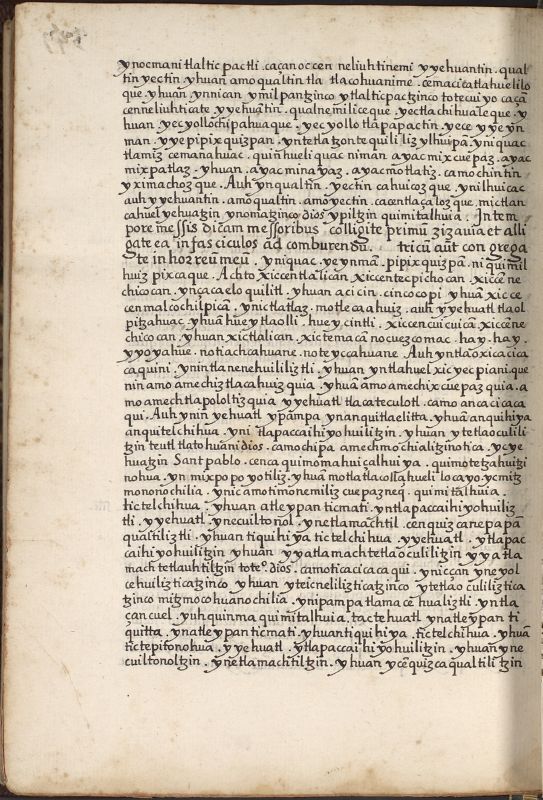 ynocmani tlalticpactli . ca çan oc cen neliuhtinemi y yehuantin . qual
tin yectin yhuan amo qualtin tla tlacohuanime . ce macica tlahuelilo
que yhuan ynnican ymilpantzinco ytlalticpactzinco totecuiyo ca çā
cenneliuhticate yyehuātin . qualnemiliceque yectlachihualeque . y
huan yecyollochipahuaque . yecyollo tlapapactin . yece yyeyn
man . yyepipixquizpan . yntetlatzontequililizylhuipā . yniquac
tlamiz cemanahuac . quinhueliquac niman ayac mixcuepaz . ayac
mixpatlaz . yhuan . ayac minayaz . ayac motlatiz . camochintin
yximachozque . Auh ynqualtin . yectin cahuicozque ynilhuicac
auh yyehuantin . amo qualtin . amoyectin . cacentlaçalozque . mictlan
cahuel yehuatzin ynomatzinco dios ypiltzin quimitalhuia . Jn tem
pore messis dicam messoribus colligite primū zizania et alli
gate ea in fasciculos ad comburendū . triticū aūt congrega
te in horreum meū . yniquac . yeynman . pipixquizpan . niquimil
huiz pixcaque . Achto xiccentlalican xiccentecpichocan xiccēne
chicocan . ynçacaeloquilitl . yhuan acicin . cincocopi yhuā xicce
cenmalcochilpicā . ynictlatlaz . motlecaahuiz . auh yyehuatl tlaol
pitzahuac . yhuā hueytlaolli . huey cintli . xiccencuicuicā xiccēne
chicocan . yhuan xictlalican . xictemacā nocuezcomac . hay . hay .
yyoyahue . notiachcahuane . noteyccahuane . Auh yntlaoxicacica
caquini . ynin tlanenehuililiztli . yhuan yntlahuelxicyecpianique
nin amo amechiztlacahuizquia . yhuan amo amechixcuepazquia . a
mo amechtlapololtizquia yyehuatl tlacateculotl . camo ancacicaca
qui . Auh ynin yehuatl ypampa ynanquitlaelitta . yhuā anquihiya
anquitelchihua . yni tlapaccaihiyohuiliztli . yhuan ytetlaoculili
tzin teutl tlatohuani dios . camochipa amechmochialitzinotica . ycye
huatzin Sant pablo . cenca quimomahuicalhuiya . quimotetzahuitzi
nohua . yn mixpopoyotiliz . yhuā motlatlacollahuelilocayo . ycmitz
mononochilia . ynic amo timonemilizcuepaznequi . quimitalhuia .
tictelchihua . yhuan atleypan ticmati . yntlapaccaihiyohuiliz
tli . yyehuatl . ynecuiltoñol . ynetlamachtil . cenquizcanepapā
qualtiliztli . yhuan tiquihiya tictelchihua . yyehuatl . ytlapac
caihiyohuilitzin yhuan yyatlamachtetlaoculilitzin yyatla
machtetlauhtiltzin toteº. dios . camoticacicacaqui . yniccan yneyol
cehuiliztica tzinco yhuan yteicneliliztica tzinco ytetlaoculiliztica
tzinco mitzmocohuanochilia . ynipampa tlamacehualiztli . yntla
çancuel . yuhquinma quimitalhuia . tactehuatl ynatleypan ti
quitta . ynatleypan ticmati . yhuan tiquihiya . tictelchihua . yhuā
tictepifonohua . yyehuatl . ytlapaccaihiyohuilitzin . yhuan yne
cuiltonoltzin . ynetlamachtiltzin . yhuan ycēquizcaqualtilitzin